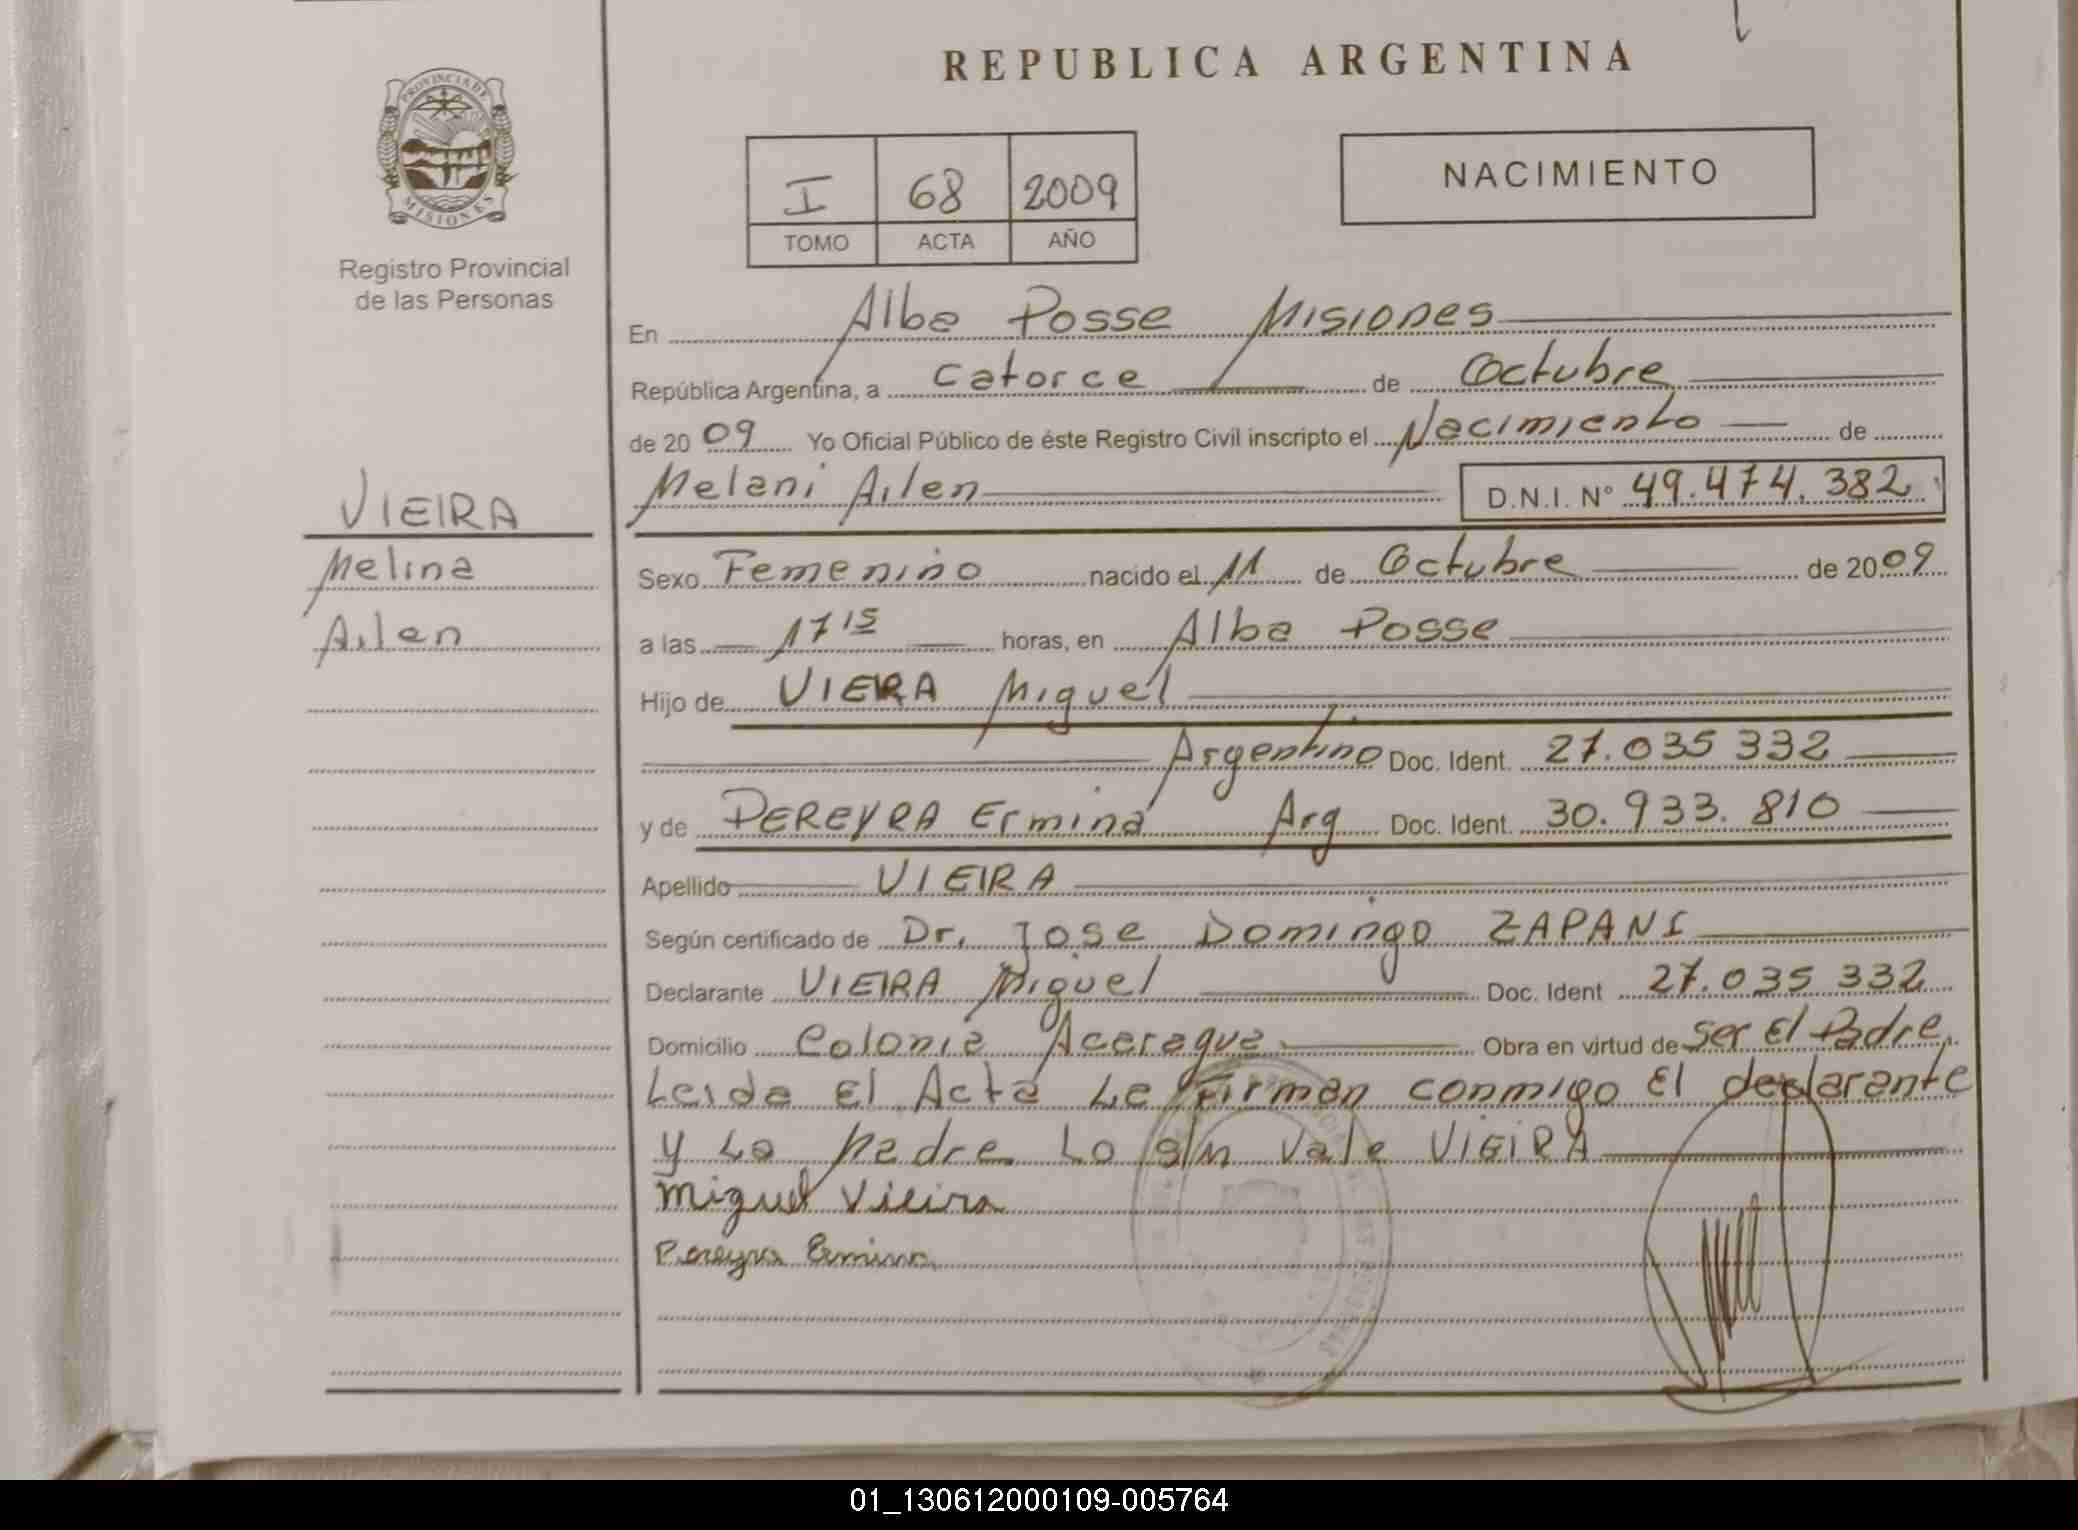 REPUBLICA ARGENTINA
PROVINCIA DE
MISIONES
Registro Provincial
de las Personas
I 68 2009
TOMO ACTA AÑO
NACIMIENTO
En Alba Posse Misiones
República Argentina, a Catorce de Octubre
de 2009 Yo Oficial Público de éste Registro Civil inscripto el Nacimiento de
Melani Ailen D.N.I. Nº 49.474.382
VIEIRA
Melina
Ailen
Sexo Femenino nacido el 11 de Octubre de 2009
a las 17 15 horas, en Alba Posse
Hijo de VIERA Miguel
Argentino Doc. Ident. 27.035 332
y de PEREYRA Ermina Arg Doc. Ident. 30.933.810
Apellido VIEIRA
Según certificado de Dr. Jose Domingo ZAPANI
Declarante VIEIRA Miguel Doc. Ident 27.035 332
Domicilio Colonia Acaragua Obra en virtud de Ser El Padre
Leida El Acta La Firman conmigo El declarante
y La Madre Lo s/n Vale VIEIRA
Miguel Vieira
Pereyra Ermina
01_130612000109-005764